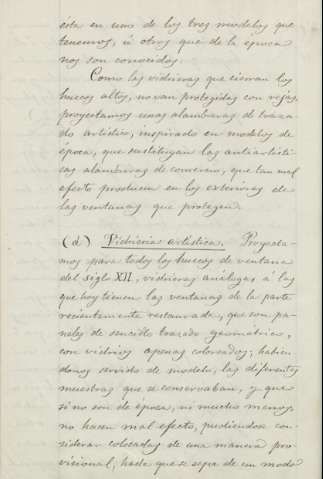 esta en uno de los tres modelos que
tenemos, ú otros que de la epoca
nos son conocidos.
Como las vidrieras que cierran los
huecos altos, no van protegidas con rejas,
proyectamos unas alambreras de traza-
do artístico, inspirado en modelos de
época, que sustituyan las antiartísti-
cas alambreras de comercio, que tan mal
efecto producen en los exteriores de
las ventanas que protegen.
(d) Vidrieria artística. Proyecta-
mos para todos los huecos de ventana
del siglo XII, vidrieras análogas á las
que hoy tienen las ventanas de la parte
recientemente restaurada, que son pa-
neles de sencillo trazado geométrico,
con vidrios apenas coloreados; habien
donos servido de modelo, las diferentes
muestras que se conservaban, y que
si no son de época, ni mucho menos,
no hacen mal efecto, pudiendose con-
siderar colocadas de una manera pro-
visional, hasta que se sepa de un modo